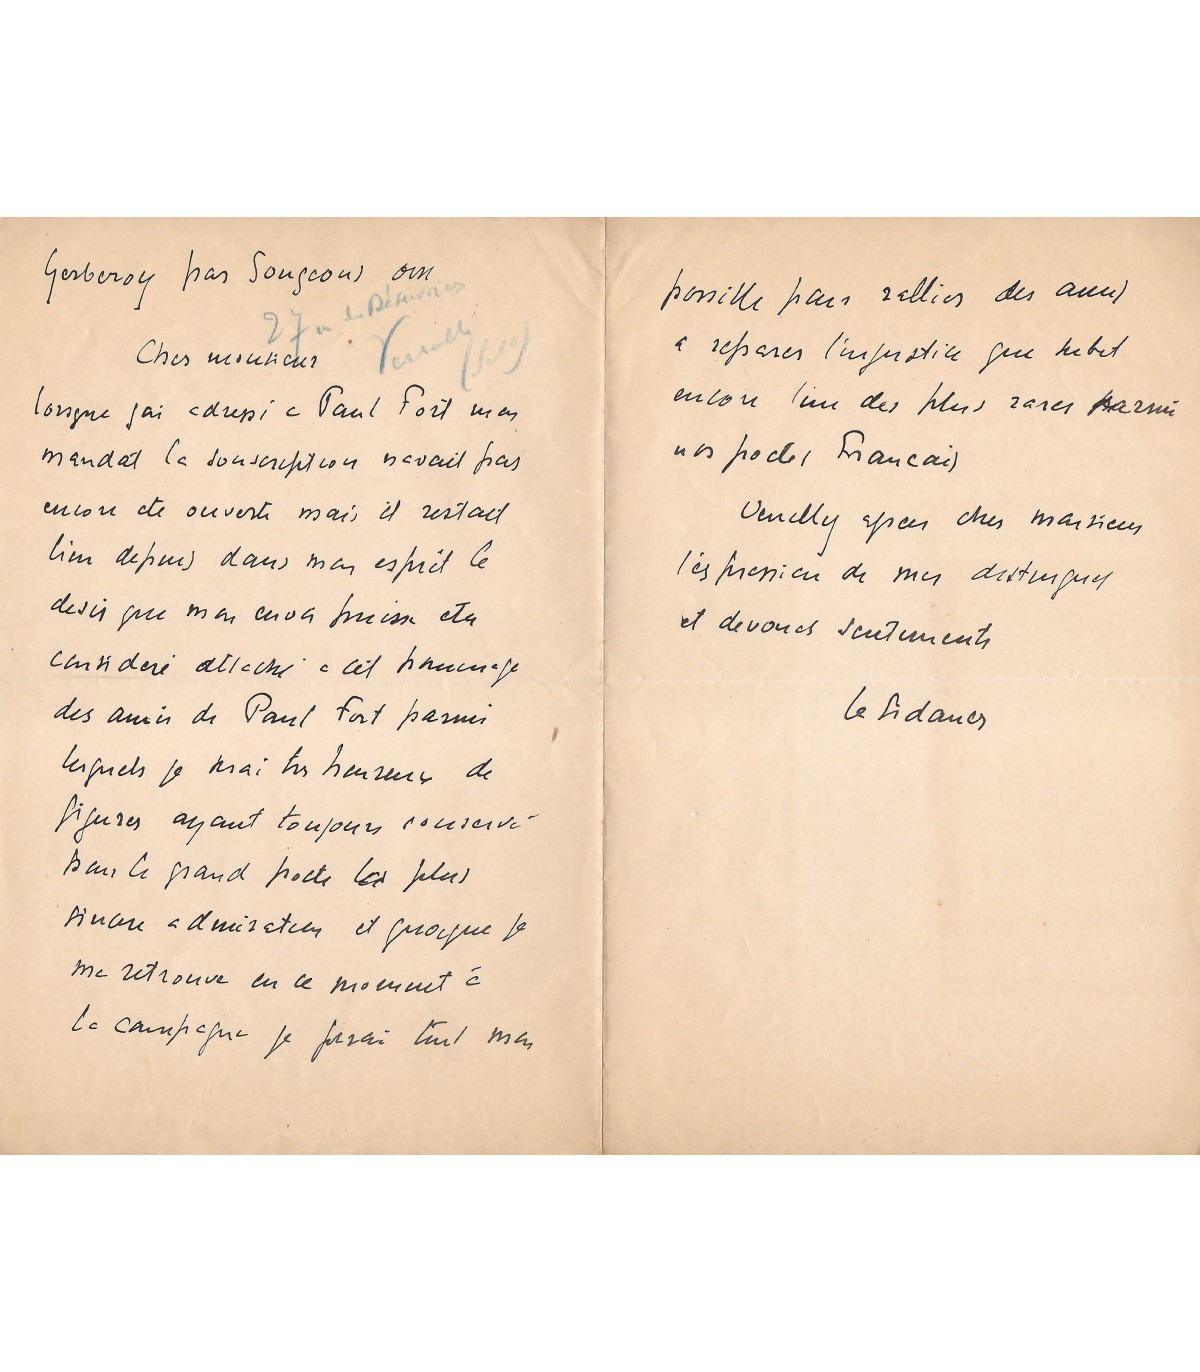 Gerberoy par Songeons oise
27 rue des Réservoirs
Versailles
Cher monsieur
lorsque j'ai adressé a Paul Fort mon
mandat la souscription navait pas
encore ete ouverte mais il restait
bien depuis dans mon esprit le
desir que mon envoi puisse etre
consideré attaché a cet hommage
des amis de Paul Fort parmi
lesquels je serai tres heureux de
figurer ayant toujours conservé
pour le grand poete la plus
sincere admiration et quoique je
me retrouve en ce moment à
la campagne je ferai tout mon
possible pour rallier des amis
a reparer l'injustice que subit
encore l'un des plus rares parmi
nos poetes Francais
Veuillez agreer cher monsieur
l'expression de mes distingues
et devoues sentiments
Le Sidaner